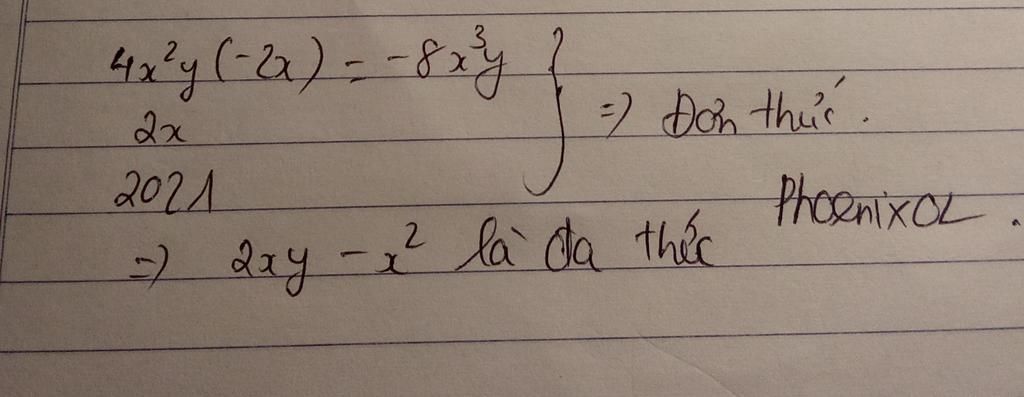 4x²y(-2x) = -8x³y
2x
2021
} => Đơn thức.
PhoenixOL.
=> 2xy - x² là đa thức